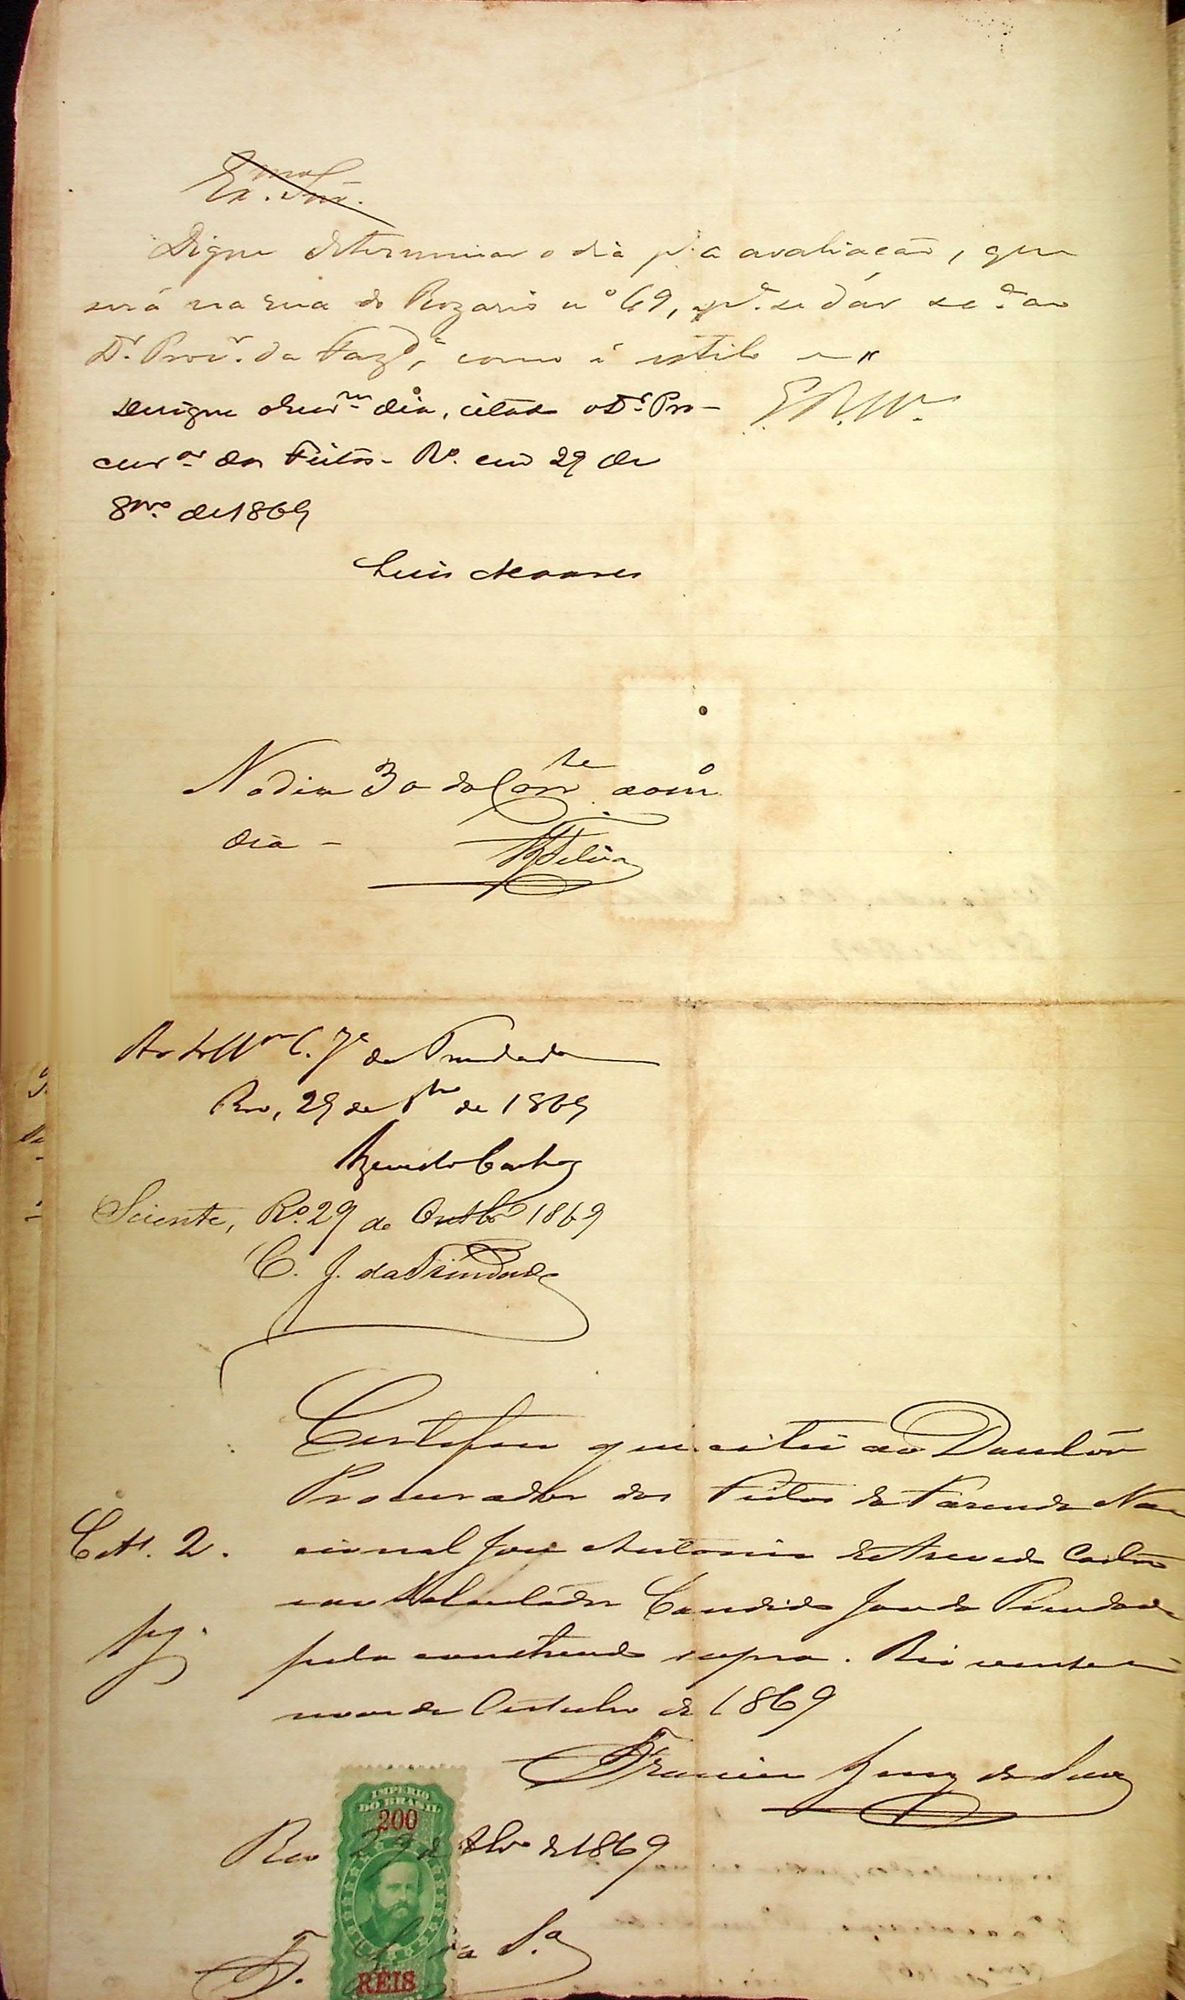 Exmo. Snr.
Digne determinar o dia pa. a avaliação, que
será na rua do Rozario no 69, pa. se dár sca. ao
Dr. Procr. da Fazda, como é estilo e
E. R. Mce.
Designe o Escrm dia, citado o Dr. Pro-
curor. dos Feitos. Ro. em 29 de
8bro. de 1869
Luis Alvares
No dia 30 do Corrte. ao meio
dia -
Silva
Ao Sollor C. Je da Trindade
Rio, 29 de 8bro de 1869
Azevedo Castro
Sciente, Ro. 29 de Outbro 1869
C. J. da Trindade
Certifico que citei ao Doutôr
Procurador dos Feitos da Fazenda Na-
Cit. 2.
cional José Antonio de Azevedo Castro
e ao Solicitador Candido José da Trindade
pg.
pelo contheudo supra. Rio vinte e
nove de Outubro de 1869
Francisco de
IMPERIO
DO BRASIL
200
Rio 29 de 8bro de 1869
F. Sa.
REIS